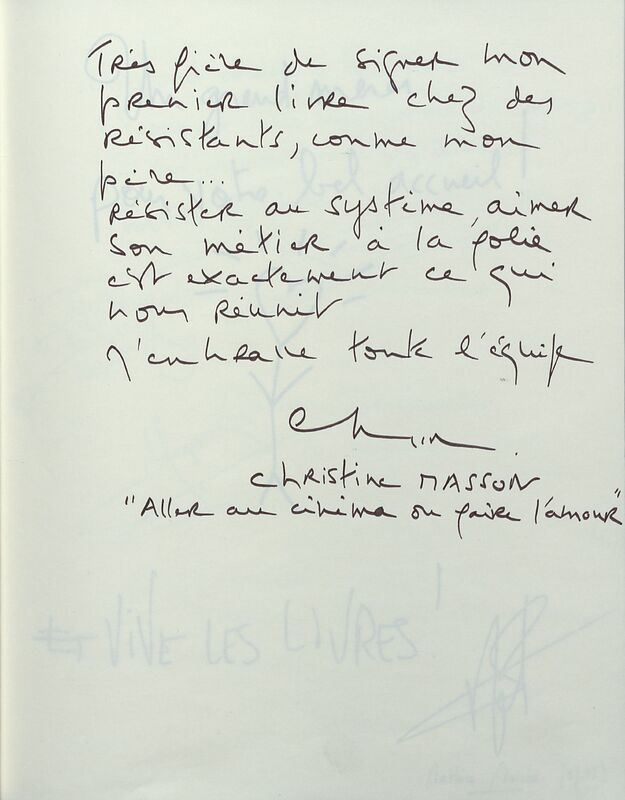 Très fière de signer mon
premier livre chez des
résistants, comme mon
père...
résister au système, aimer
son métier à la folie
est exactement ce qui
nous réunit
J'embrasse toute l'équipe
Christine MASSON
"Aller au cinéma ou faire l'amour"
Un grand merci
pour votre bel accueil !
Et VIVE LES LIVRES !